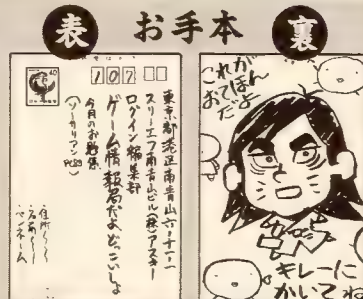 表 お手本 裏
40
107
東京都港区南青山六-十一-一
スリーエフ南青山ビル(株)アスキー
ログイン編集部
ゲーム情報局だよどっこいしょ
今月のお題係
(ソーサリアン PC89)
・住所〜〜
・名前〜〜
・ペンネーム
これがほん
おてほよ
だよ
キレーに
かいてね